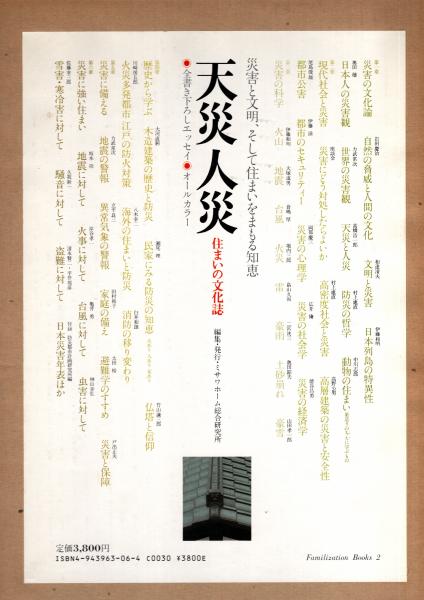 第一章
災害の文化論
自然の脅威と人間の文化
文明と災害
日本列島の特異性
日本人の災害観
世界の災害観
天災と人災
防災の哲学
動物の住まい
第二章
現代社会と災害
災害にどう対処したらよいか
高密度社会と災害
高層建築の災害と安全性
都市公害
都市のセキュリティー
災害の心理学
災害の社会学
災害の経済学
第三章
災害の科学
火山
地震
台風
火災
雷
豪雨
土砂崩れ
豪雪
災害と文明、そして住まいをまもる知恵
天災人災
住まいの文化誌
編集・発行・ミサワホーム総合研究所
●全書き下ろしエッセイ●オールカラー
第四章
歴史から学ぶ
木造建築の歴史と防災
民家にみる防災の知恵
仏塔と信仰
火災多発都市〈江戸〉の防火対策
海外の住まいと防災
消防の移り変わり
第五章
災害に備える
地震の警報
異常気象の警報
家庭の備え
避難学のすすめ
災害と保障
第六章
災害に強い住まい
地震に対して
火事に対して
台風に対して
虫害に対して
雪害・寒冷害に対して
騒音に対して
盗難に対して
日本災害年表ほか
定価3,800円
ISBN4-943963-06-4 C0030 ¥3800E
Familization Books 2